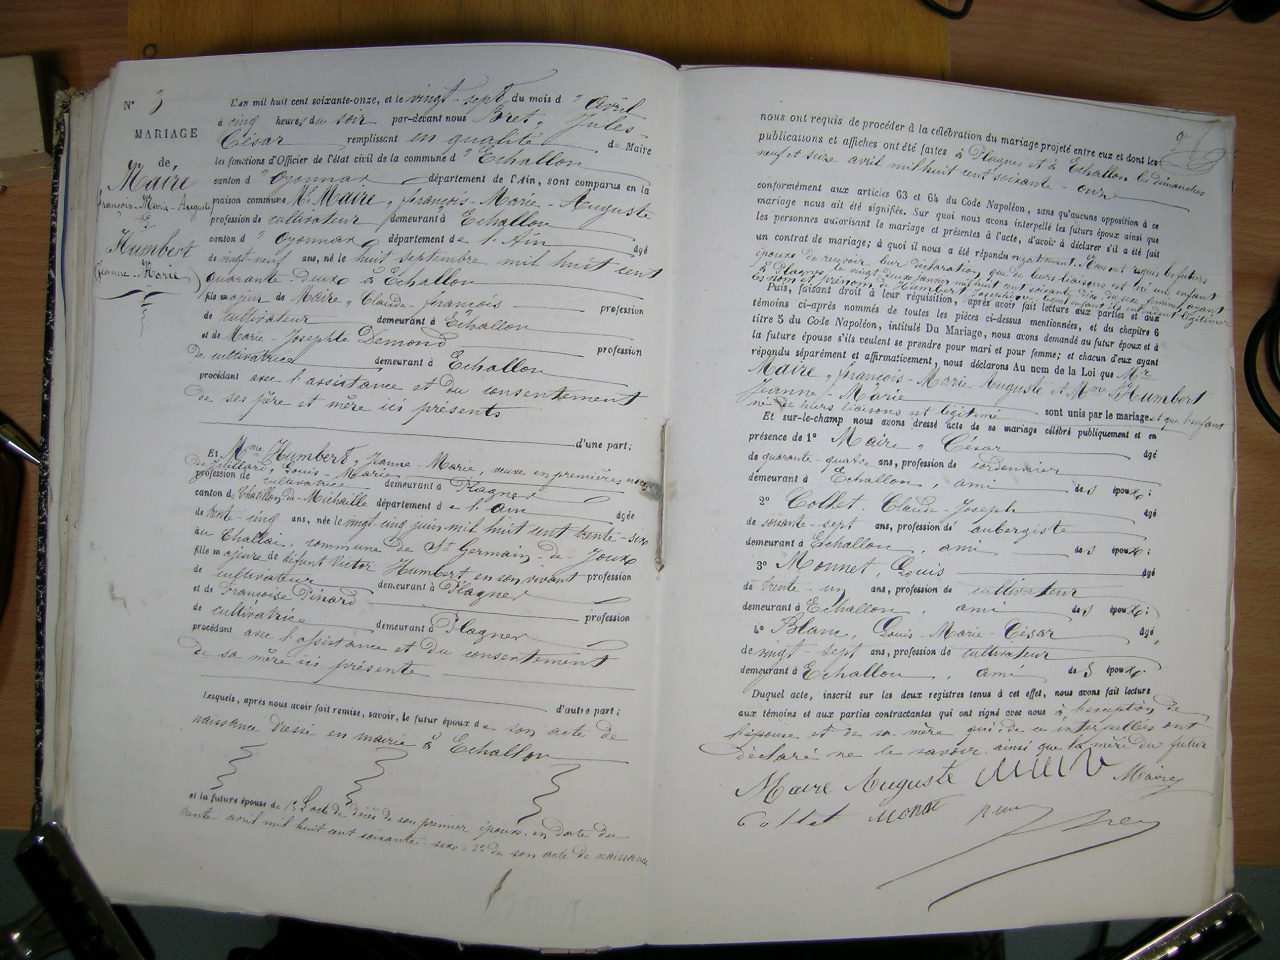 N° 3
MARIAGE
de
Maire
François-Marie-Auguste
&
Humbert
Jeanne-Marie
L'an mil huit cent soixante-onze, et le vingt-sept du mois d'Avril
à cinq heures du soir par-devant nous Poret, Jules-
César remplissant en qualité de Maire
les fonctions d'Officier de l'état civil de la commune d'Echallon
canton d'Oyonnax département de l'Ain, sont comparus en la
maison commune Mr Maire, François-Marie-Auguste
profession de cultivateur demeurant à Echallon
canton d'Oyonnax département de l'Ain âgé
de vingt-neuf ans, né le huit septembre mil huit cent
quarante-deux à Echallon
fils majeur de Maire, Claude-François profession
de cultivateur demeurant à Echallon
et de Marie-Josephte Demond profession
de cultivatrice demeurant à Echallon
procédant avec l'assistance et du consentement
de ses père et mère ici présents
d'une part;
Et Mme Humbert, Jeanne-Marie, veuve en premières noces
de Louis-Marie
profession de cultivatrice demeurant à Plagnes
canton de Châtillon-de-Michaille département de l'Ain âgée
de trente-cinq ans, née le vingt cinq juin mil huit cent trente-six
au Challai, commune de St Germain-de-Joux
fille majeure de défunt Victor Humbert, en son vivant profession
de cultivateur demeurant à Plagnes
et de Françoise Pinard profession
de cultivatrice demeurant à Plagnes
procédant avec l'assistance et du consentement
de sa mère ici présente
d'autre part;
Lesquels, après nous avoir fait remise, savoir, le futur époux de son acte de
naissance dressé en mairie à Echallon
et la future épouse de 1° l'acte de décès de son premier époux en date du
trente avril mil huit cent soixante-six 2° de son acte de naissance
nous ont requis de procéder à la célébration du mariage projeté entre eux et dont les
publications et affiches ont été faites à Plagnes et à Echallon les dimanches
neuf et seize avril mil huit cent soixante-onze
conformément aux articles 63 et 64 du Code Napoléon, sans qu'aucune opposition à ce
mariage nous ait été signifiée. Sur quoi nous avons interpellé les futurs époux ainsi que
les personnes autorisant le mariage et présentes à l'acte, d'avoir à déclarer s'il a été fait
un contrat de mariage; à quoi il nous a été répondu négativement. Et nous ont requis les futurs
époux de recevoir leur déclaration que de leurs liaisons est né un enfant
à Plagnes, le vingt deux mil huit cent soixante
les nom et prénom de Humbert légitimer
Puis, faisant droit à leur réquisition, après avoir fait lecture aux parties et aux
témoins ci-après nommés de toutes les pièces ci-dessus mentionnées, et du chapitre 6
titre 5 du Code Napoléon, intitulé Du Mariage, nous avons demandé au futur époux et à
la future épouse s'ils veulent se prendre pour mari et pour femme; et chacun d'eux ayant
répondu séparément et affirmativement, nous déclarons Au nom de la Loi que Mr
Maire, François-Marie Auguste et Mme Humbert
Jeanne-Marie sont unis par le mariage et que l'enfant
né de leurs liaisons est légitimé
Et sur-le-champ nous avons dressé acte de ce mariage célébré publiquement et en
présence de 1° Maire, César âgé
de quarante-quatre ans, profession de cordonnier
demeurant à Echallon, ami des époux;
2° Collet, Claude-Joseph âgé
de soixante-sept ans, profession de aubergiste
demeurant à Echallon, ami des époux;
3° Monnet, Louis âgé
de trente-un ans, profession de cultivateur
demeurant à Echallon, ami des époux;
4° Blanc, Louis-Marie-César âgé
de vingt-sept ans, profession de cultivateur
demeurant à Echallon, ami des époux;
Duquel acte, inscrit sur les deux registres tenus à cet effet, nous avons fait lecture
aux témoins et aux parties contractantes qui ont signé avec nous à l'exception de
l'épouse et de sa mère qui, de ce interpellés ont
déclaré ne le savoir ainsi que la mère du futur
Maire Auguste Maire
Collet Monet